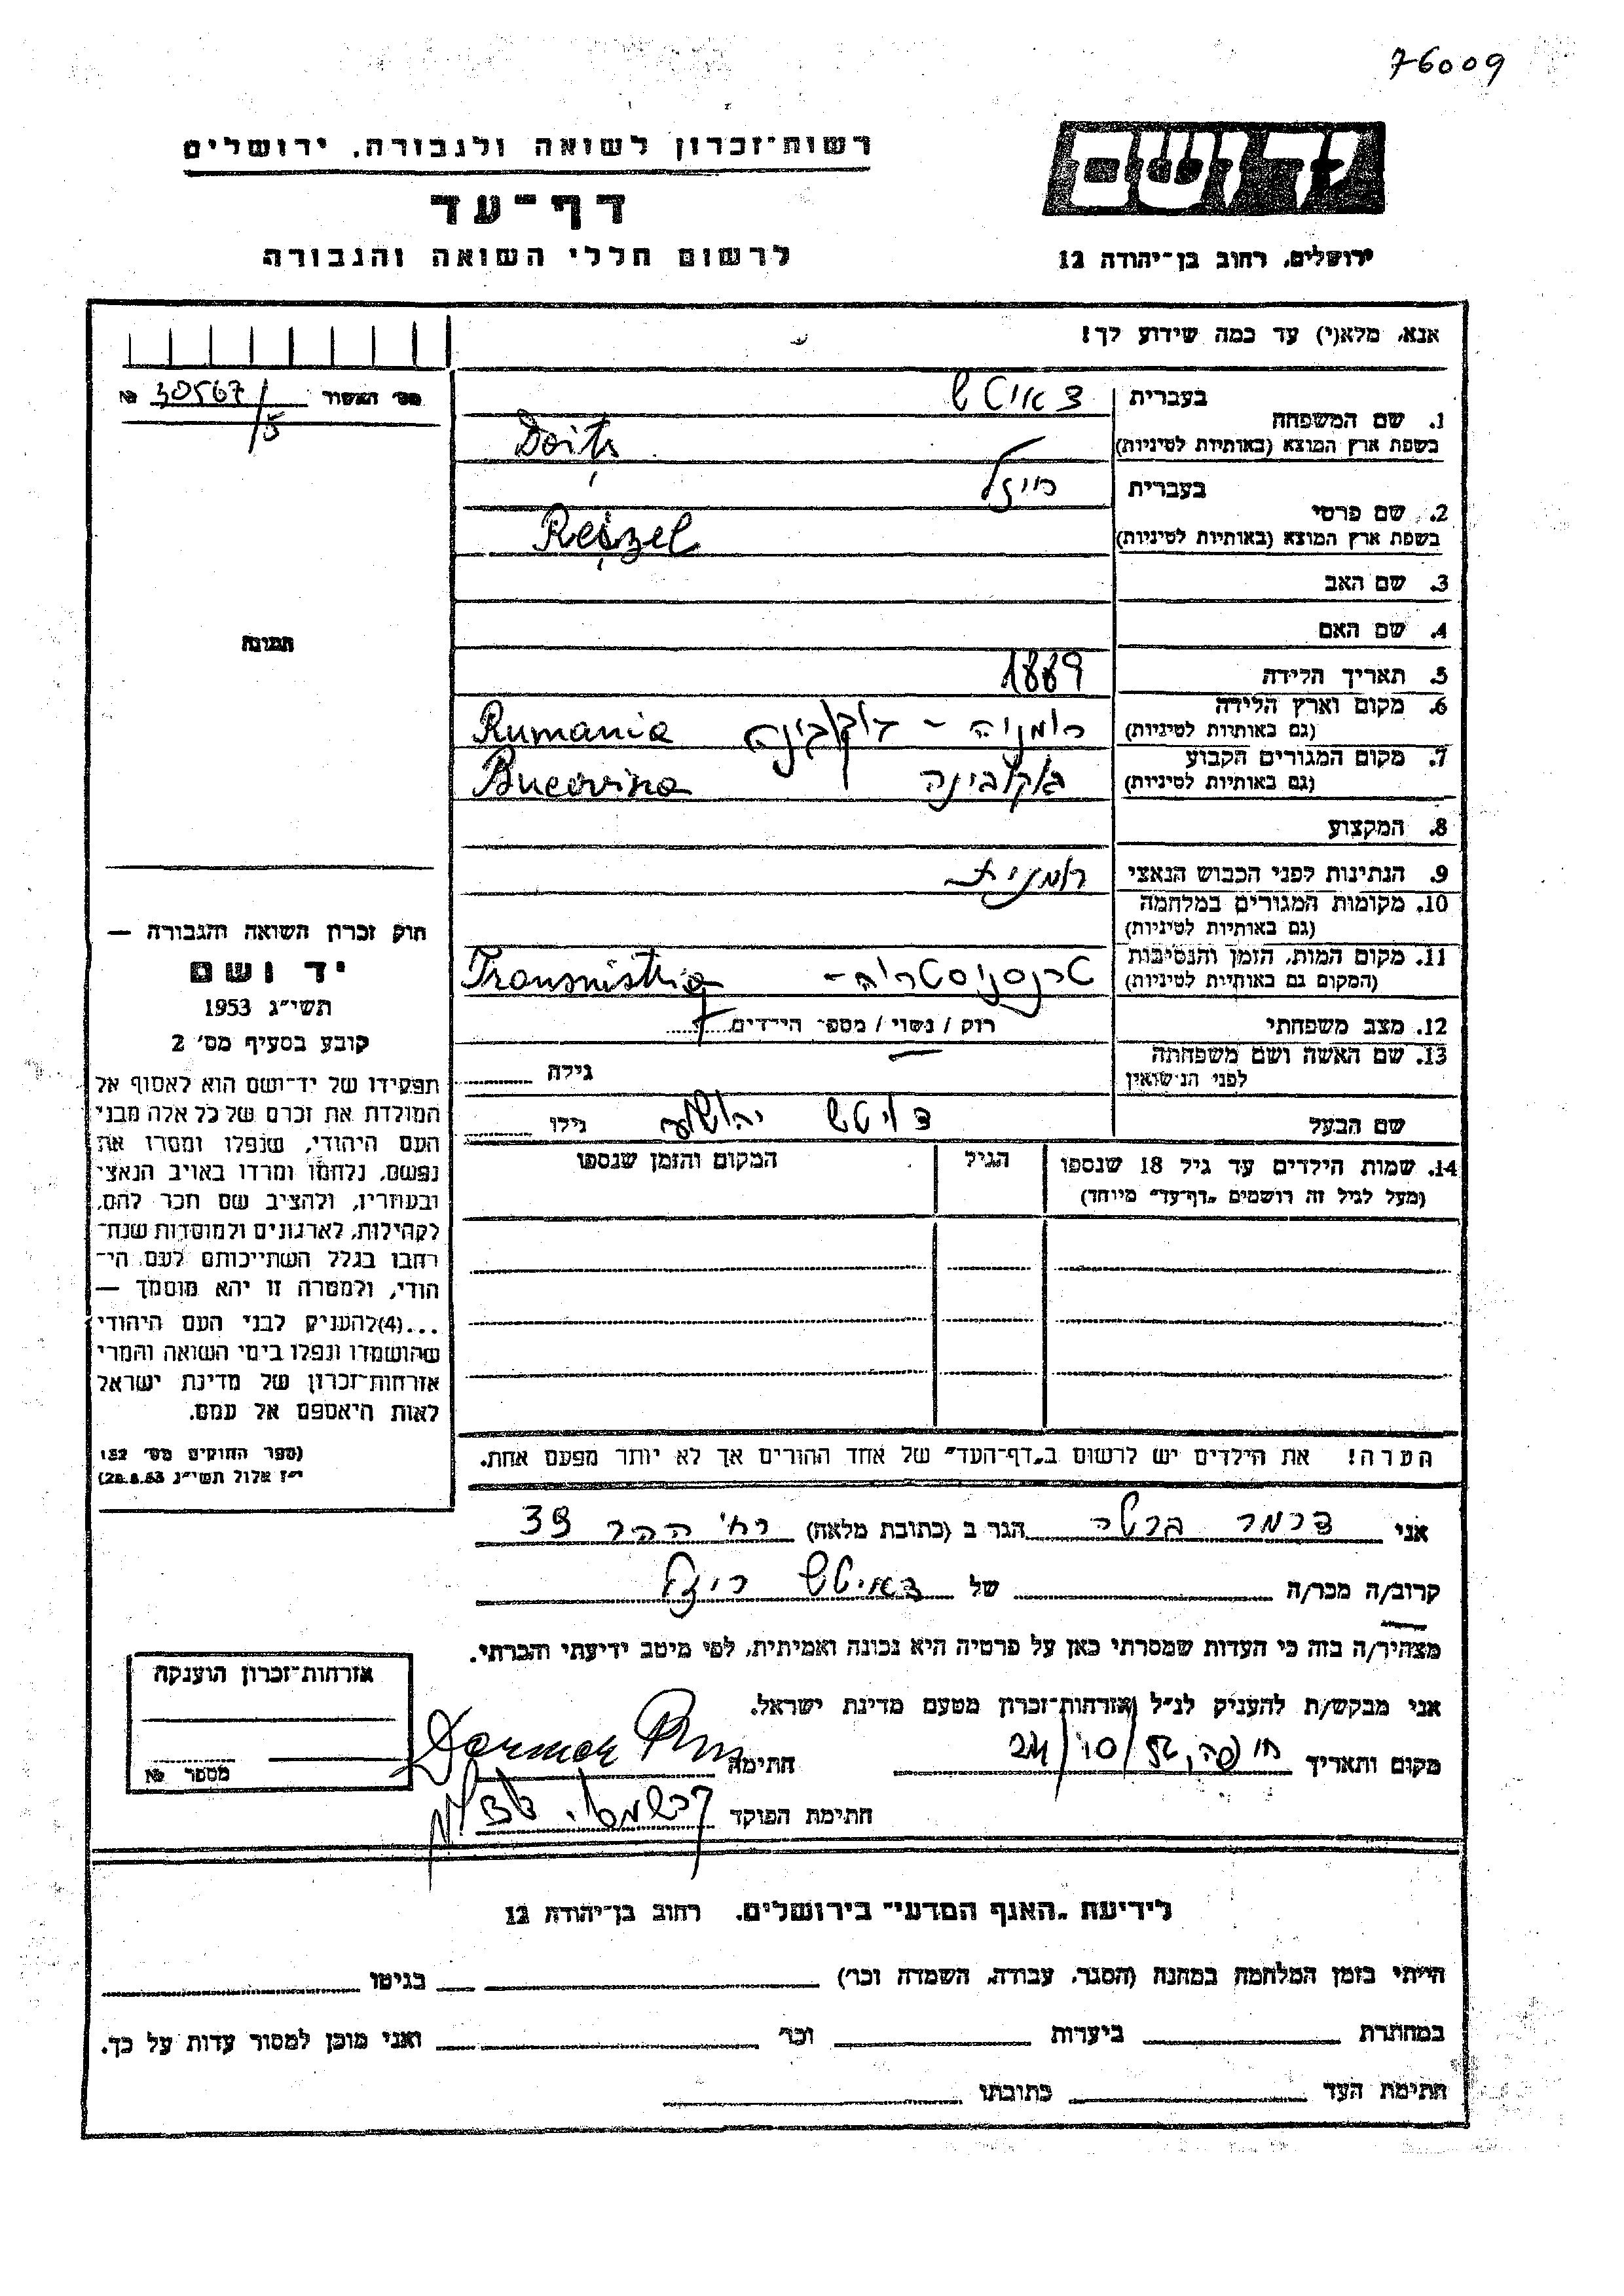 76009
יד ושם
רשות־זכרון לשואה ולגבורה, ירושלים
דף־עד
לרשום חללי השואה והגבורה
ירושלים, רחוב בן־יהודה 12
אנא, מלא(י) עד כמה שידוע לך!
מס׳ האשור № 30567/5
1. שם המשפחה
בעברית
דאיטש
בשפת ארץ המוצא (באותיות לטיניות)
Doitș
2. שם פרטי
בעברית
רייזל
בשפת ארץ המוצא (באותיות לטיניות)
Reizel
3. שם האב
4. שם האם
5. תאריך הלידה 1889
6. מקום וארץ הלידה
(גם באותיות לטיניות)
רומניה - בוקובינה Rumania
7. מקום המגורים הקבוע
(גם באותיות לטיניות)
בוקובינה Bucovina
8. המקצוע
9. הנתינות לפני הכבוש הנאצי רומנית
10. מקומות המגורים במלחמה
(גם באותיות לטיניות)
11. מקום המות, הזמן והנסיבות
(המקום גם באותיות לטיניות)
טרנסניסטריה - Transnistria
12. מצב משפחתי רוק / נשוי / מספר הילדים 7
13. שם האשה ושם משפחתה
לפני הנישואין
גילה
שם הבעל דויטש יהושע גילו
14. שמות הילדים עד גיל 18 שנספו
(מעל לגיל זה רושמים „דף־עד״ מיוחד)
הגיל
המקום והזמן שנספו
הערה! את הילדים יש לרשום ב„דף־העד״ של אחד ההורים אך לא יותר מפעם אחת.
תמונה
חוק זכרון השואה והגבורה —
יד ושם
תשי״ג 1953
קובע בסעיף מס׳ 2
תפקידו של יד־ושם הוא לאסוף אל
המולדת את זכרם של כל אלה מבני
העם היהודי, שנפלו ומסרו את
נפשם, נלחמו ומרדו באויב הנאצי
ובעוזריו, ולהציב שם וזכר להם,
לקהילות, לארגונים ולמוסדות שנח־
רבו בגלל השתייכותם לעם הי־
הודי, ולמטרה זו יהא מוסמך —
...(4)להעניק לבני העם היהודי
שהושמדו ונפלו בימי השואה והמרי
אזרחות־זכרון של מדינת ישראל
לאות היאספם אל עמם.
(ספר החוקים מס׳ 132
י״ז אלול תשי״ג 28.8.53)
אני דרמר ברטה הגר ב (כתובת מלאה) רח׳ ההר 39
קרוב/ה מכר/ה של דאיטש ריזל
מצהיר/ה בזה כי העדות שמסרתי כאן על פרטיה היא נכונה ואמיתית, לפי מיטב ידיעתי והכרתי.
אני מבקש/ת להעניק לנ״ל אזרחות־זכרון מטעם מדינת ישראל.
מקום ותאריך חיפה, 24/10/56 חתימה
חתימת הפוקד
אזרחות־זכרון הוענקה
מספר №
לידיעת „האגף המדעי״ בירושלים, רחוב בן־יהודה 12
הייתי בזמן המלחמה במחנה (הסגר, עבודה, השמדה וכו׳) בגיטו
במחתרת ביערות וכו׳ ואני מוכן למסור עדות על כך.
חתימת העד כתובתו